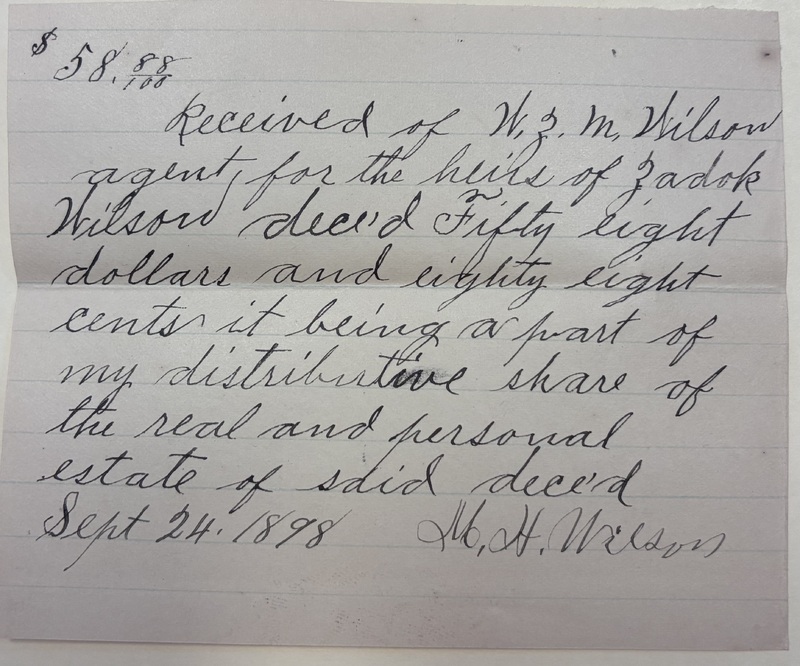 $ 58. 88/100
Received of W. Z. M. Wilson
agent, for the heirs of Zadok
Wilson dece'd Fifty eight
dollars and eighty eight
cents it being a part of
my distributive share of
the real and personal
estate of said dece'd
Sept 24. 1898 M. H. Wilson